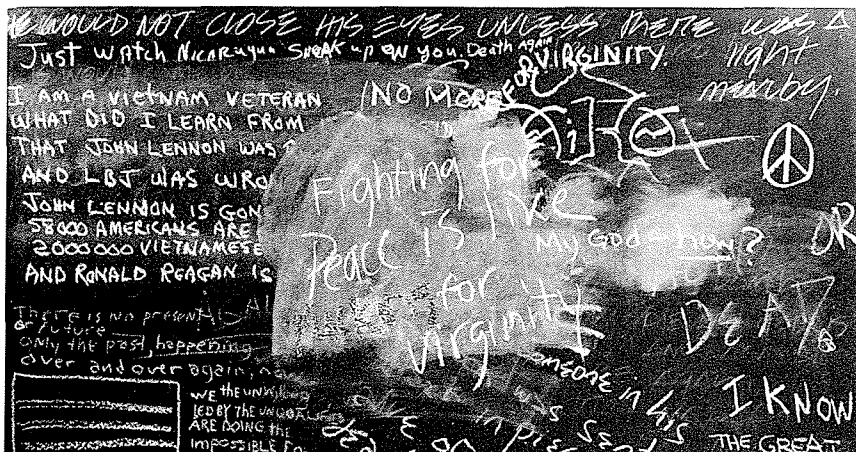 HE WOULD NOT CLOSE HIS EYES UNLESS THERE WAS A
light
nearby.
Just WATCH NICARAGUA SNEAK up ON YOU. Death AGAIN
FOR VIRGINITY.
I AM A VIETNAM VETERAN
WHAT DID I LEARN FROM
THAT JOHN LENNON WAS
AND LBJ WAS WRO
JOHN LENNON IS GON
58000 AMERICANS ARE
2000000 VIETNAMESE
AND RONALD REAGAN IS
NO MORE
Fighting for
Peace is like
for
virginity
MY GOD - HOW?
OR
DEAD
There is no present
or future
only the past, happening
over and over again,
WE THE UNWILLING
LED BY THE
ARE DOING THE
IMPOSSIBLE FO
someone in his
I KNOW
THE GREAT